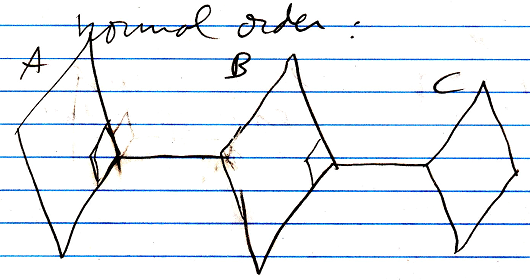 normal order :
A B C